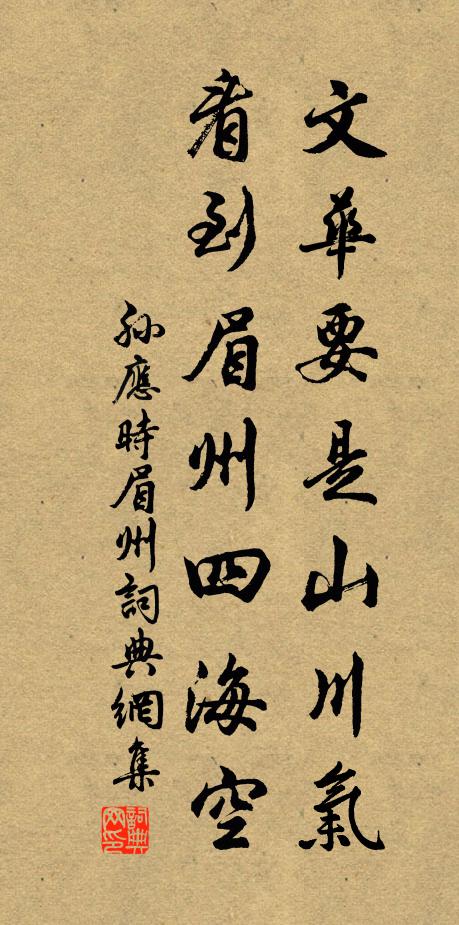 文華要是山川氣
看到眉州四海空
孫應時眉州詞典網集
詞典網印